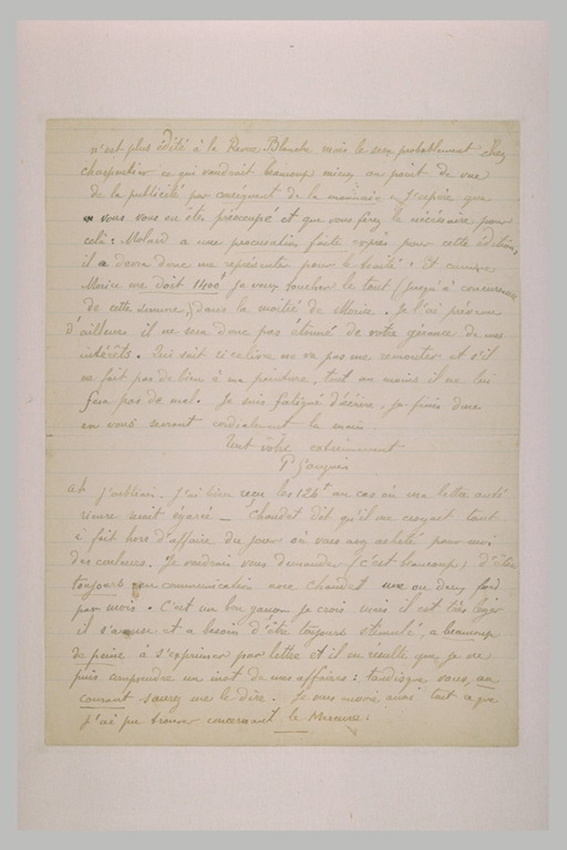 n'est plus édité à la Revue Blanche mais le sera probablement chez
charpentier ce qui vaudrait beaucoup mieux au point de vue
de la publicité par conséquent de la monnaie. J'espère que
vous vous en êtes préoccupé et que vous ferez le nécessaire pour
celà : Molard a une procuration faite exprès pour cette édition,
il a devra donc me représenter pour le traité. Et comme
Morice me doit 1400f je veux toucher le tout (jusqu'à concurrence
de cette somme,) dans la moitié de Morice. Je l'ai prévenu
d'ailleurs il ne sera donc pas étonné de votre gérance de mes
intérêts. Qui sait si ce livre ne va pas me remonter et s'il
ne fait pas de bien à ma peinture, tout au moins il ne lui
fera pas de mal. Je suis fatigué d'écrire, je finis donc
en vous serrant cordialement la main.
Tout vôtre entièrement
P Gauguin
Ah j'oubliais. J'ai bien reçu les 126f au cas où ma lettre anté
rieure serait égarée _ Chaudet dit qu'il me croyait tout
à fait hors d'affaire du jour où vous avez acheté pour moi
des couleurs. Je voudrais vous demander (c'est beaucoup) d'être
toujours en communication avec Chaudet une ou deux fois
par mois. C'est un bon garçon je crois mais il est très léger
il s'amuse et a besoin d'être toujours stimulé, a beaucoup
de peine à s'exprimer par lettre et il en résulte que je ne
puis comprendre un mot de mes affaires : tandisque vous, au
courant saurez me le dire. Je vous envoie aussi tout ce que
j'ai pu trouver concernant le Mercure :